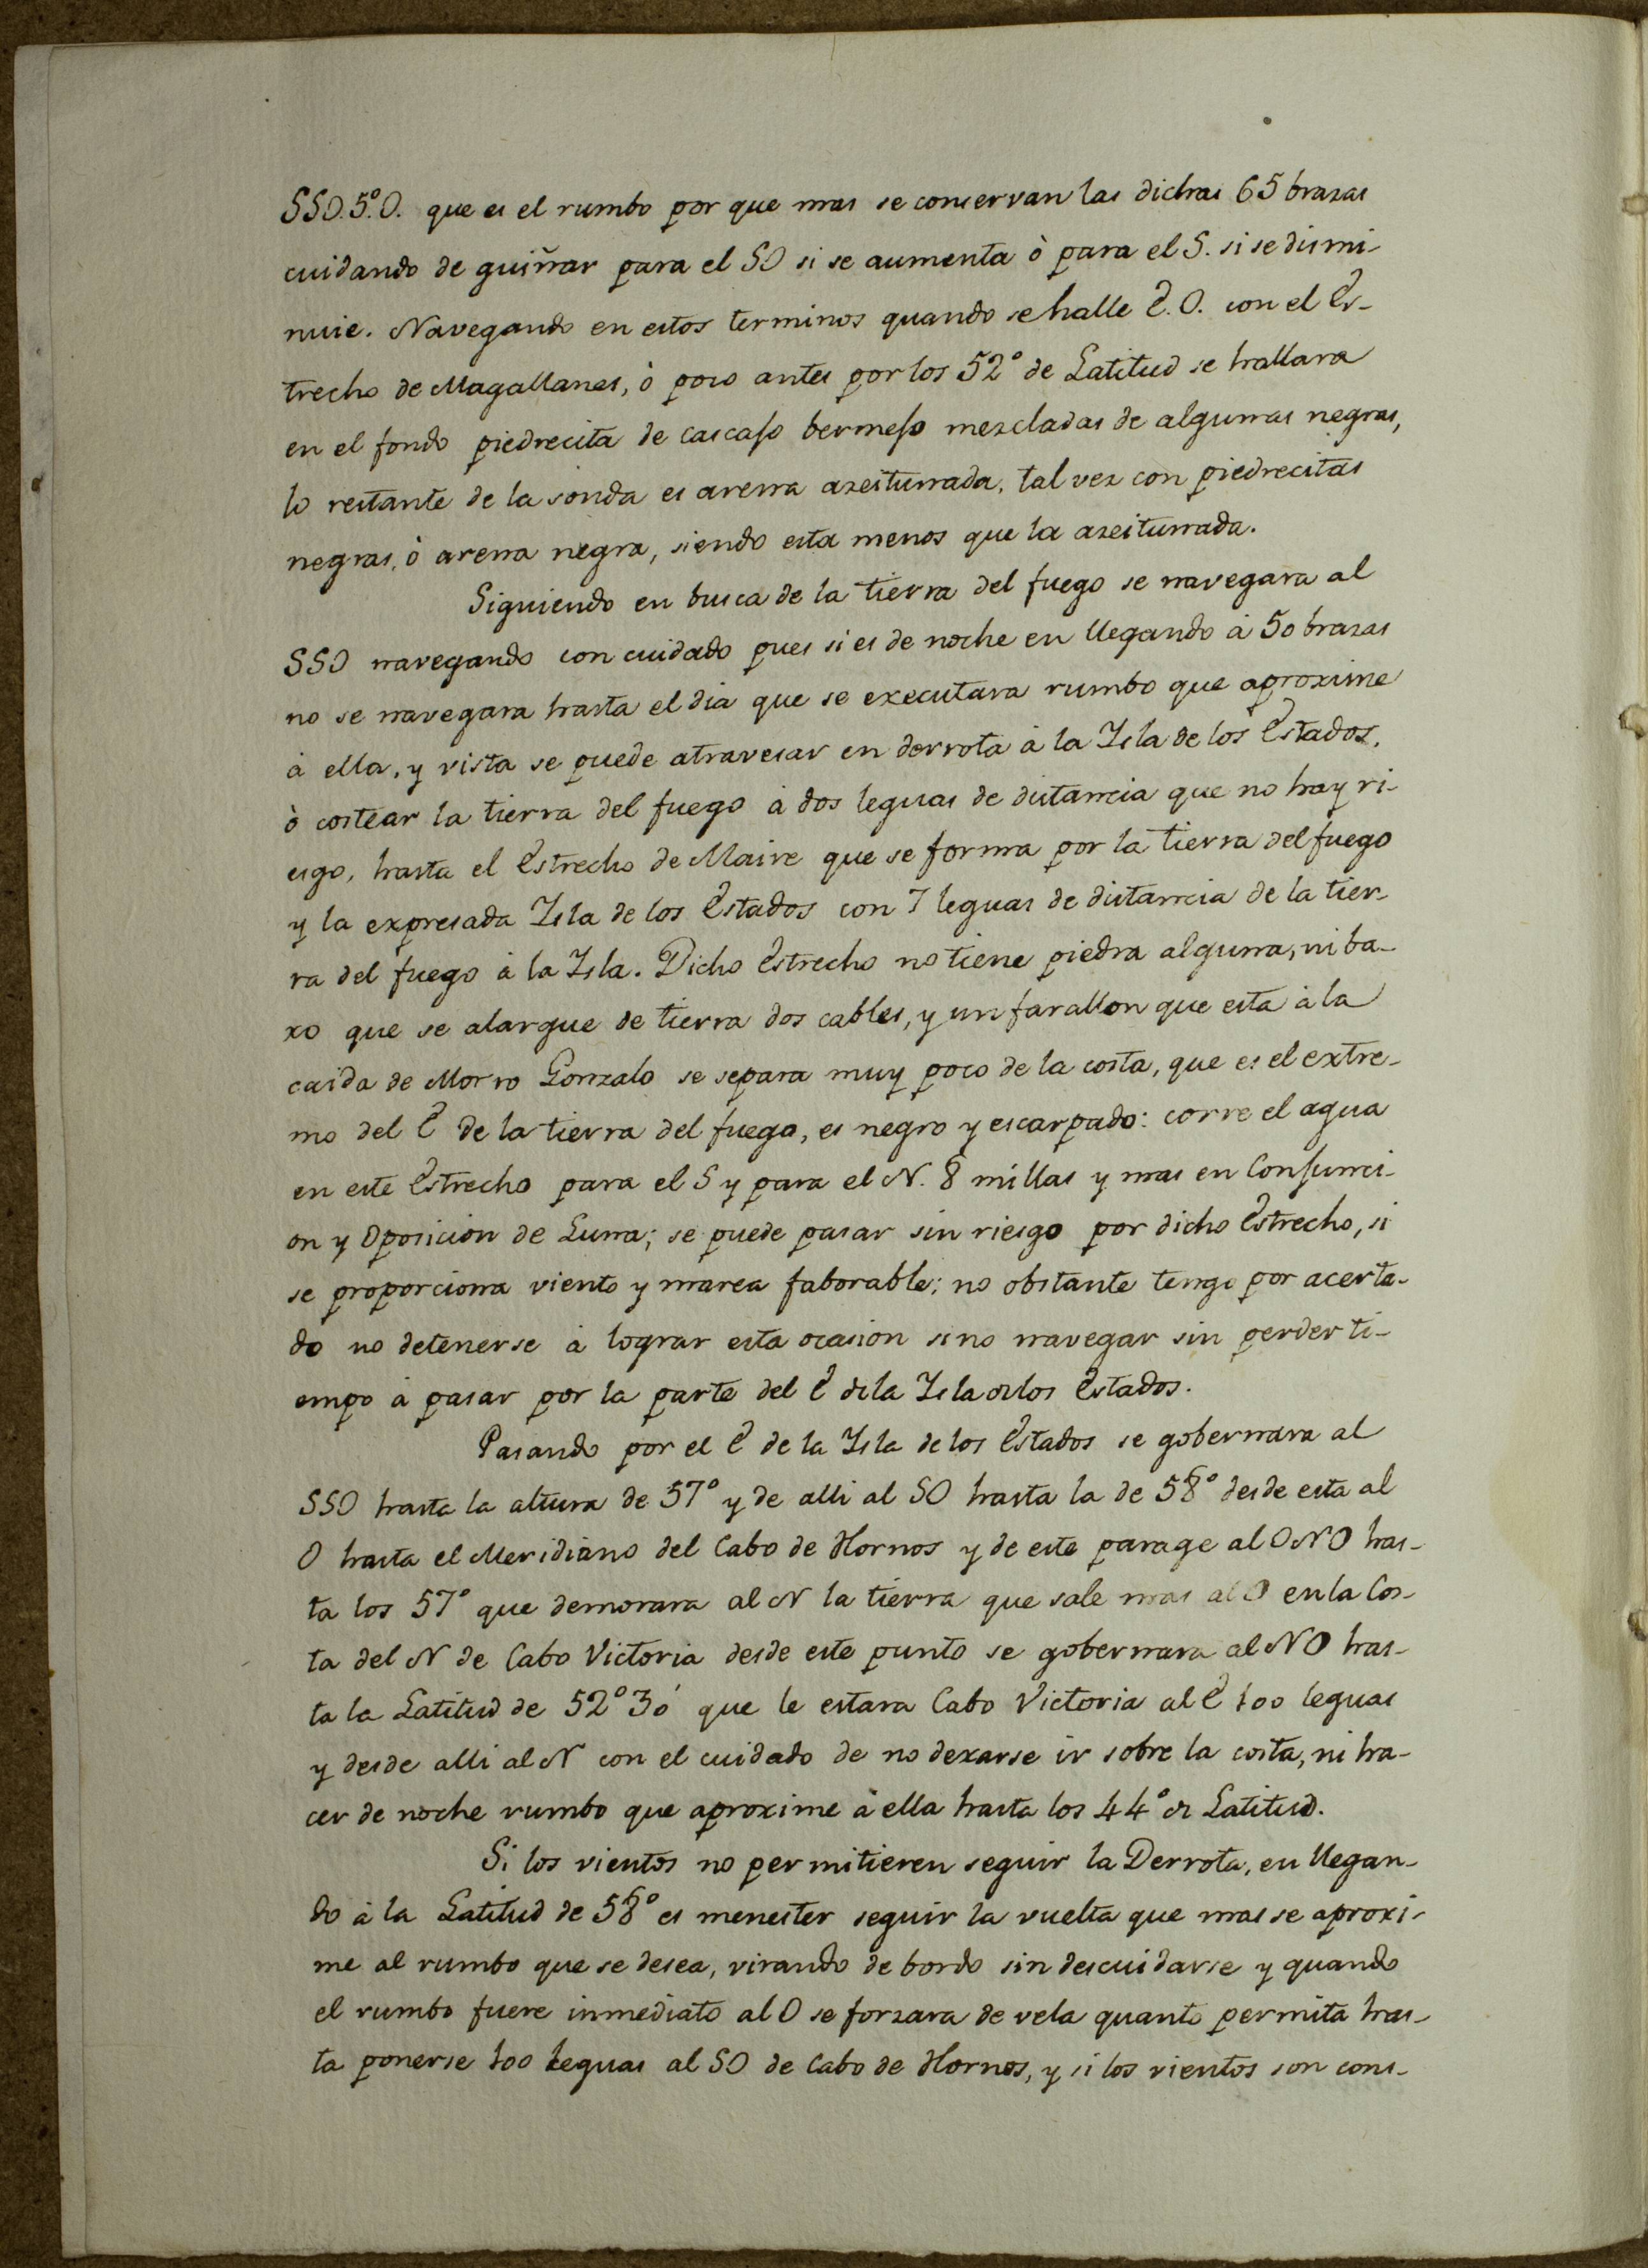 SSO.5º.O. que es el rumbo por que mas se conservan las dichas 65 brazas
cuidando de guiñar para el SO si se aumenta ò para el S. si se dismi-
nuie. Navegando en estos terminos quando se halle E.O. con el Es-
trecho de Magallanes, ò poco antes por los 52° de Latitud se hallara
en el fondo piedrecita de cascajo bermejo mezcladas de algunas negras,
lo restante de la sonda es arena azeitunada, tal vez con piedrecitas
negras, ò arena negra, siendo esta menos que la azeitunada.
Siguiendo en busca de la tierra del fuego se navegara al
SSO navegando con cuidado pues si es de noche en llegando à 50 brazas
no se navegara hasta el dia que se executara rumbo que aproxime
à ella, y vista se puede atravesar en derrota à la Isla de los Estados,
ò costear la tierra del fuego à dos leguas de distancia que no hay ri-
esgo, hasta el Estrecho de Maire que se forma por la tierra del fuego
y la expresada Isla de los Estados con 7 leguas de distancia de la tier-
ra del fuego à la Isla. Dicho Estrecho no tiene piedra alguna, ni ba-
xo que se alargue de tierra dos cables, y un farallon que esta à la
caida de Morro Gonzalo se separa muy poco de la costa, que es el extre-
mo del E de la tierra del fuego, es negro y escarpado: corre el agua
en este Estrecho para el S y para el N. 8 millas y mas en Conjunci-
on y Oposicion de Luna; se puede pasar sin riesgo por dicho Estrecho, si
se proporciona viento y marea faborable; no obstante tengo por acerta-
do no detenerse à lograr esta ocasion sino navegar sin perder ti-
empo à pasar por la parte del E de la Isla de los Estados.
Pasando por el E de la Isla de los Estados se gobernara al
SSO hasta la altura de 57° y de alli al SO hasta la de 58° desde esta al
O hasta el Meridiano del Cabo de Hornos y de este parage al ONO has-
ta los 57° que demorara al N la tierra que sale mas al O en la Cos-
ta del N de Cabo Victoria desde este punto se gobernara al NO has-
ta la Latitud de 52° 30' que le estara Cabo Victoria al E 100 leguas
y desde alli al N con el cuidado de no dexarse ir sobre la costa, ni ha-
cer de noche rumbo que aproxime à ella hasta los 44° de Latitud.
Si los vientos no permitieren seguir la Derrota, en llegan-
do à la Latitud de 58° es menester seguir la vuelta que mas se aproxi-
me al rumbo que se desea, virando de bordo sin descuidarse y quando
el rumbo fuere inmediato al O se forzara de vela quanto permita has-
ta ponerse 100 leguas al SO de Cabo de Hornos, y si los vientos son cons-